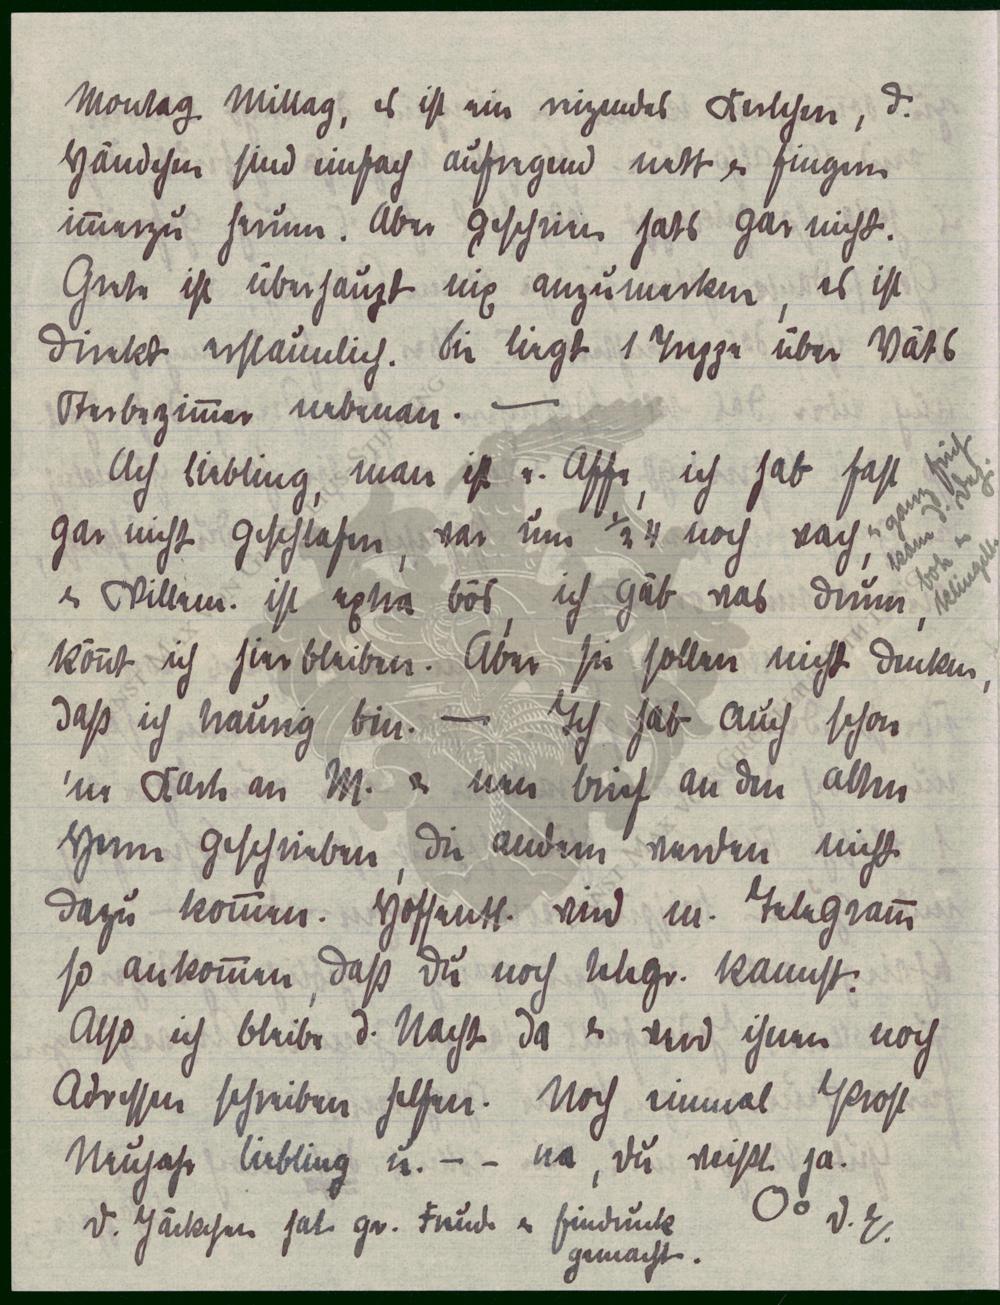 Montag Mittag, es ist ein reizendes Kerlchen, d.
Händchen sind einfach aufregend nett & fingern
im̅erzu herum. Aber geschrien hats gar nicht.
Grete ist überhaupt nix anzumerken, es ist
direkt erstaunlich. Sie liegt 1 Treppe über Väts
Sterbezim̅er nebenan. —
Ach Liebling, man ist e. Affe, ich hab fast
gar nicht geschlafen, war um ½ 4 noch wach,
& ganz früh
kam d. Tel.
bote &
klingelte
& Willem. ist extra bös, ich gäb was drum,
kön̅t ich hierbleiben. Aber sie sollen nicht denken,
daß ich traurig bin. — Ich hab auch schon
'ne Karte an M. & nen Brief an den alten
Herrn geschrieben, die andern werden nicht
dazu kom̅en. Hoffentl. wird m. Telegram̅
so ankom̅en, daß Du noch telegr. kannst.
Also ich bleibe d. Nacht da & werd ihnen noch
Adressen schreiben helfen. Noch einmal Prost
Neujahr Liebling u. – – na, Du weißt ja.
D. Jäckchen hat gr. Freude & Eindruck
gemacht.
Oo D. E.